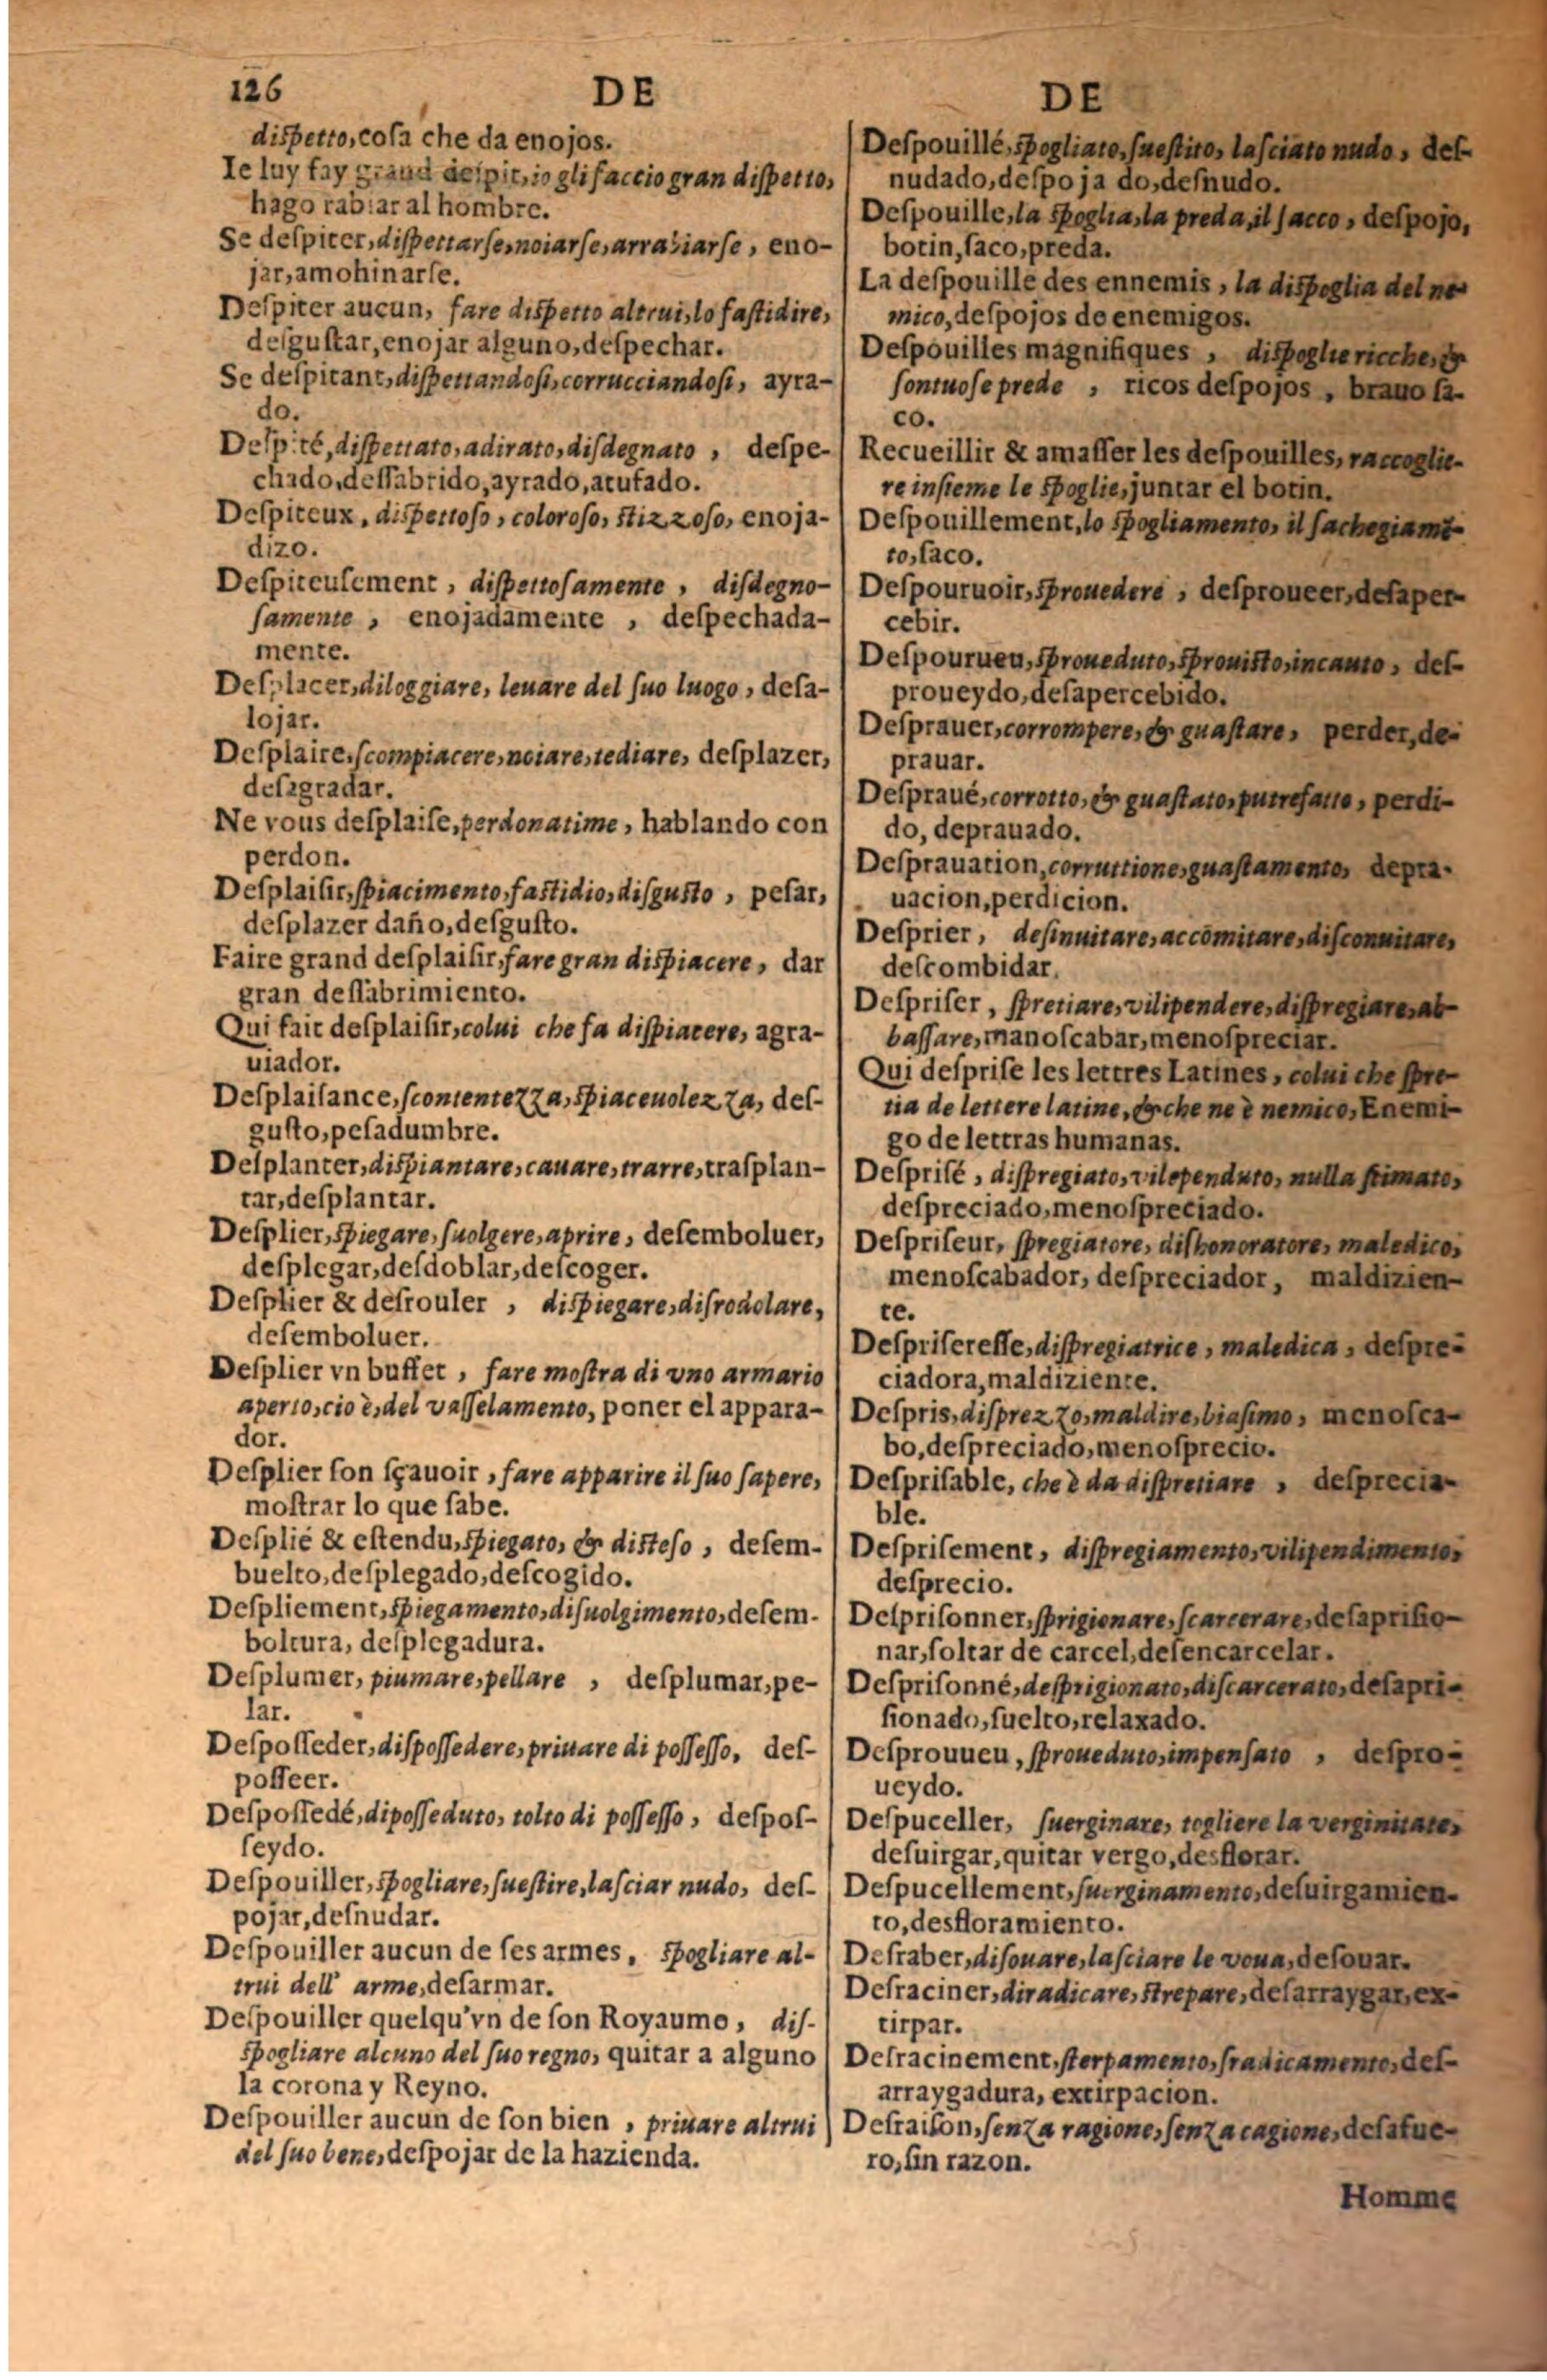 126 DE
diſpetto, coſa che da enojos.
Ie luy fay grand deſpit, io gli faccio gran diſpetto,
hago rabiar al hombre.
Se deſpiter, diſpettarſe, noiarſe, arrabiarſe, eno-
jar, amohinarſe.
Deſpiter aucun, fare diſpetto altrui, lo faſtidire,
deſguſtar, enojar alguno, deſpechar.
Se deſpitant, diſpettandoſi, corrucciandoſi, ayra-
do.
Deſpité, diſpettato, adirato, diſdegnato, deſpe-
chado, deſſabrido, ayrado, atufado.
Deſpiteux, diſpettoſo, coloroſo, ſtizzoſo, enoja-
dizo.
Deſpiteuſement, diſpettoſamente, diſdegno-
ſamente, enojadamente, deſpechada-
mente.
Deſplacer, diloggiare, leuare del ſuo luogo, deſa-
lojar.
Deſplaire, ſcompiacere, noiare, tediare, deſplazer,
deſagradar.
Ne vous deſplaiſe, perdonatime, hablando con
perdon.
Deſplaiſir, ſpiacimento, faſtidio, diſguſto, peſar,
deſplazer daño, deſguſto.
Faire grand deſplaiſir, fare gran diſpiacere, dar
gran deſſabrimiento.
Qui fait deſplaiſir, colui che fa diſpiacere, agra-
uiador.
Deſplaiſance, ſcontentezza, ſpiaceuolezza, deſ-
guſto, peſadumbre.
Deſplanter, diſpiantare, cauare, trarre, traſplan-
tar, deſplantar.
Deſplier, ſpiegare, ſuolgere, aprire, deſemboluer,
deſplegar, deſdoblar, deſcoger.
Deſplier & deſrouler, diſpiegare, diſrodolare,
deſemboluer.
Deſplier vn buffet, fare moſtra di vno armario
aperto, cio è, del vaſſelamento, poner el appara-
dor.
Deſplier ſon ſçauoir, fare apparire il ſuo ſapere,
moſtrar lo que ſabe.
Deſplié & eſtendu, ſpiegato, & diſteſo, deſem-
buelto, deſplegado, deſcogido.
Deſpliement, ſpiegamento, diſuolgimento, deſem-
boltura, deſplegadura.
Deſplumer, piumare, pellare, deſplumar, pe-
lar.
Deſpoſſeder, diſpoſſedere, priuare di poſſeſſo, deſ-
poſſeer.
Deſpoſſedé, dipoſſeduto, tolto di poſſeſſo, deſpoſ-
ſeydo.
Deſpouiller, ſpogliare, ſueſtire, laſciar nudo, deſ-
pojar, deſnudar.
Deſpouiller aucun de ſes armes, ſpogliare al-
trui dell' arme, deſarmar.
Deſpouiller quelqu'vn de ſon Royaume, diſ-
ſpogliare alcuno del ſuo regno, quitar a alguno
la corona y Reyno.
Deſpouiller aucun de ſon bien, priuare altrui
del ſuo bene, deſpojar de la hazienda.
DE
Deſpouillé, ſpogliato, ſueſtito, laſciato nudo, deſ-
nudado, deſpoja do, deſnudo.
Deſpouille, la ſpoglia, la preda, il ſacco, deſpojo,
botin, ſaco, preda.
La deſpouille des ennemis, la diſpoglia del ne-
mico, deſpojos de enemigos.
Deſpouilles magnifiques, diſpoglie ricche, &
ſontuoſe prede, ricos deſpojos, brauo ſa-
co.
Recueillir & amaſſer les deſpouilles, raccoglie-
re inſieme le ſpoglie, juntar el botin.
Deſpouillement, lo ſpogliamento, il ſachegiamē-
to, ſaco.
Deſpouruoir, ſprouedere, deſproueer, deſaper-
cebir.
Deſpourueu, ſproueduto, ſprouiſto, incauto, deſ-
proueydo, deſapercebido.
Deſprauer, corrompere, & guaſtare, perder, de-
prauar.
Deſpraué, corrotto, & guaſtato, putrefatto, perdi-
do, deprauado.
Deſprauation, corruttione, guaſtamento, depra-
uacion, perdicion.
Deſprier, deſinuitare, accōmitare, diſconuitare,
deſcombidar.
Deſpriſer, ſpretiare, vilipendere, diſpregiare, ab-
baſſare, manoſcabar, menoſpreciar.
Qui deſpriſe les lettres Latines, colui che ſpre-
tia de lettere latine, & che ne è nemico, Enemi-
go de lettras humanas.
Deſpriſé, diſpregiato, vilependuto, nulla ſtimato,
deſpreciado, menoſpreciado.
Deſpriſeur, ſpregiatore, diſhonoratore, maledico,
menoſcabador, deſpreciador, maldizien-
te.
Deſpriſereſſe, diſpregiatrice, maledica, deſpre-
ciadora, maldiziente.
Deſpris, diſprezzo, maldire, biaſimo, menoſca-
bo, deſpreciado, menoſprecio.
Deſpriſable, che è da diſpretiare, deſprecia-
ble.
Deſpriſement, diſpregiamento, vilipendimento,
deſprecio.
Deſpriſonner, ſprigionare, ſcarcerare, deſapriſio-
nar, ſoltar de carcel, deſencarcelar.
Deſpriſonné, deſprigionato, diſcarcerato, deſapri-
ſionado, ſuelto, relaxado.
Deſprouueu, ſproueduto, impenſato, deſpro-
ueydo.
Deſpuceller, ſuerginare, togliere la verginitate,
deſuirgar, quitar vergo, desflorar.
Deſpucellement, ſuerginamento, deſuirgamien-
to, desfloramiento.
Deſraber, diſouare, laſciare le voua, deſouar.
Deſraciner, diradicare, ſtrepare, deſarraygar, ex-
tirpar.
Deſracinement, ſterpamento, ſradicamento, deſ-
arraygadura, extirpacion.
Deſraiſon, ſenza ragione, ſenza cagione, deſafue-
ro, ſin razon.
Homme